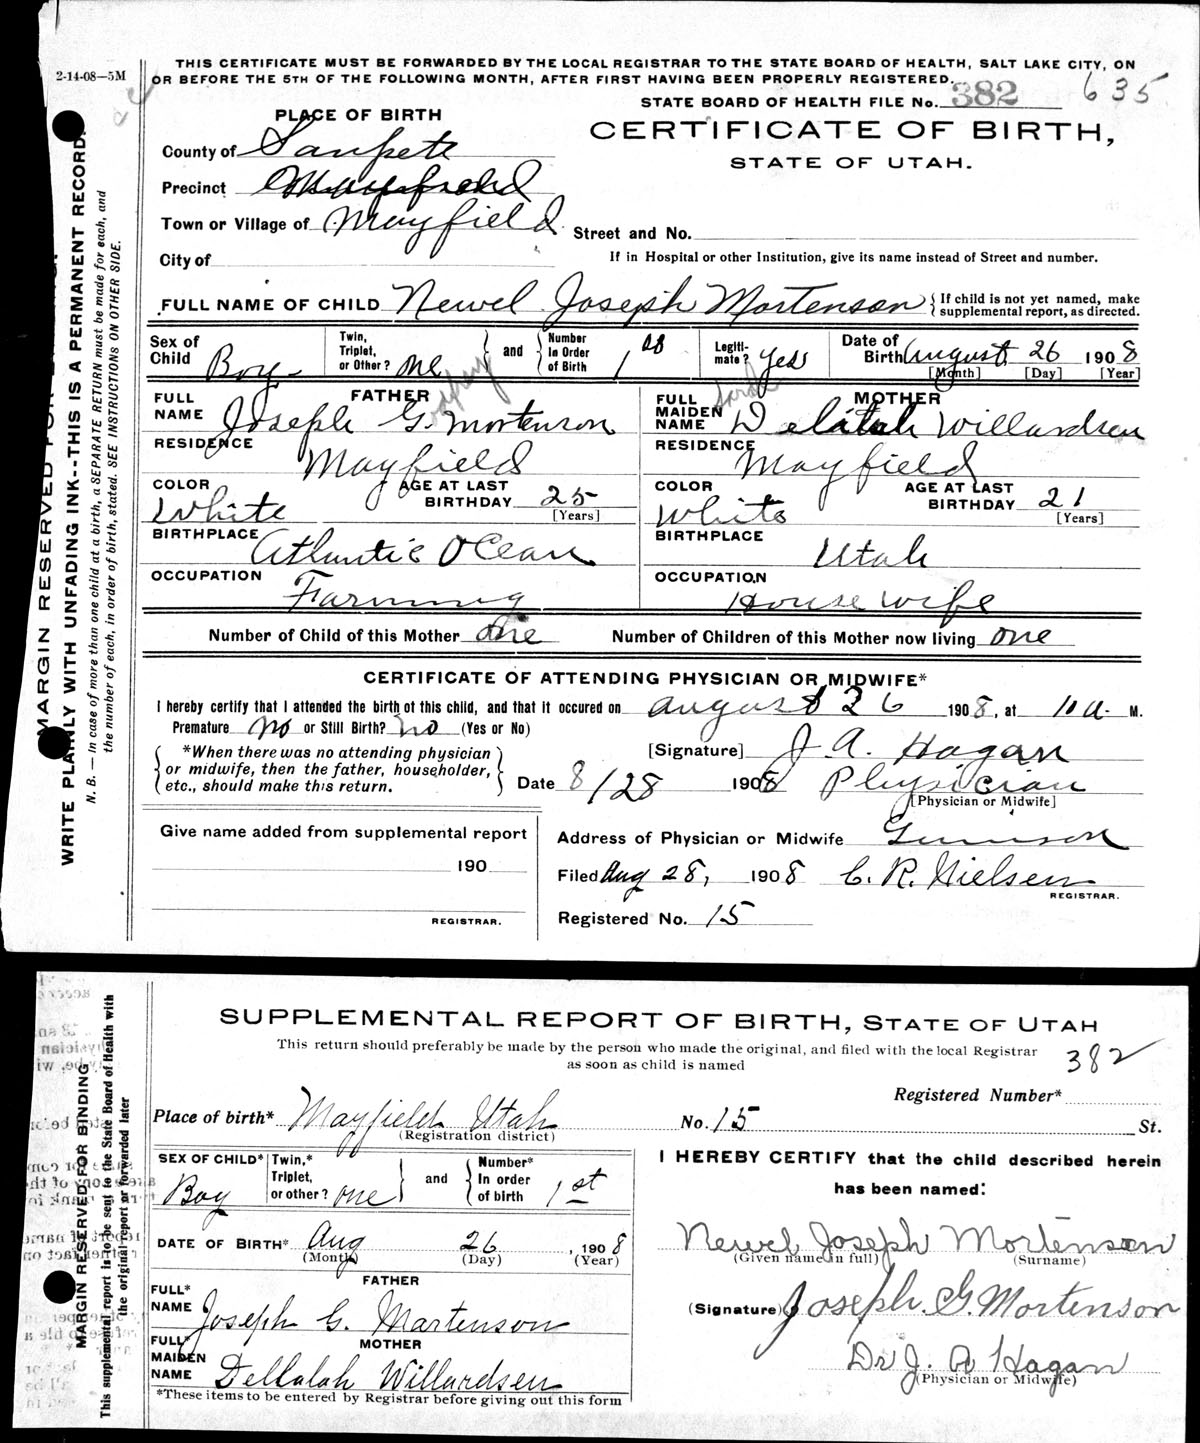 2-14-08—5M
THIS CERTIFICATE MUST BE FORWARDED BY THE LOCAL REGISTRAR TO THE STATE BOARD OF HEALTH, SALT LAKE CITY, ON
OR BEFORE THE 5TH OF THE FOLLOWING MONTH, AFTER FIRST HAVING BEEN PROPERLY REGISTERED.
STATE BOARD OF HEALTH FILE No. 382 635
PLACE OF BIRTH
CERTIFICATE OF BIRTH,
STATE OF UTAH.
County of Sanpete
Precinct Mayfield
Town or Village of Mayfield
Street and No.
City of
If in Hospital or other Institution, give its name instead of Street and number.
FULL NAME OF CHILD Newel Joseph Mortenson { If child is not yet named, make supplemental report, as directed.
Sex of Child Boy Twin, Triplet, or Other? one and Number in Order of Birth 1 Legiti-mate? Yes Date of Birth August 26 1908
[Month] [Day] [Year]
FATHER
FULL NAME Joseph G. Mortenson
MOTHER
FULL MAIDEN NAME Sarah Delilah Willardsen
RESIDENCE Mayfield
RESIDENCE Mayfield
COLOR White AGE AT LAST BIRTHDAY 25 [Years]
COLOR White AGE AT LAST BIRTHDAY 21 [Years]
BIRTHPLACE Atlantic Ocean
BIRTHPLACE Utah
OCCUPATION Farming
OCCUPATION House wife
Number of Child of this Mother one Number of Children of this Mother now living one
CERTIFICATE OF ATTENDING PHYSICIAN OR MIDWIFE*
I hereby certify that I attended the birth of this child, and that it occured on August 26 1908, at 10 a M.
Premature No or Still Birth? No (Yes or No)
*When there was no attending physician
or midwife, then the father, householder,
etc., should make this return.
[Signature] J. A. Hagan
Date 8/28 1908 Physician
[Physician or Midwife]
Give name added from supplemental report
190
REGISTRAR.
Address of Physician or Midwife Gunnison
Filed Aug 28, 1908 C. R. Nielsen
REGISTRAR.
Registered No. 15
MARGIN RESERVED FOR BINDING.
WRITE PLAINLY WITH UNFADING INK--THIS IS A PERMANENT RECORD.
N. B. — In case of more than one child at a birth, a SEPARATE RETURN must be made for each, and
the number of each, in order of birth, stated. SEE INSTRUCTIONS ON OTHER SIDE.
SUPPLEMENTAL REPORT OF BIRTH, STATE OF UTAH
This return should preferably be made by the person who made the original, and filed with the local Registrar
as soon as child is named
382
Registered Number*
Place of birth* Mayfield Utah No. 15 St.
(Registration district)
SEX OF CHILD* Boy Twin,* Triplet, or other? one and Number* In order of birth 1st
I HEREBY CERTIFY that the child described herein
has been named:
DATE OF BIRTH* Aug 26, 1908
(Month) (Day) (Year)
Newel Joseph Mortenson
(Given name in full) (Surname)
FATHER
FULL* NAME Joseph G. Martenson
(Signature) Joseph. G. Mortenson
MOTHER
FULL* MAIDEN NAME Dellalah Willardsen
Dr J. A Hagan
(Physician or Midwife)
*These items to be entered by Registrar before giving out this form
MARGIN RESERVED FOR BINDING
This supplemental report is to be sent to the State Board of Health with
the original report or forwarded later